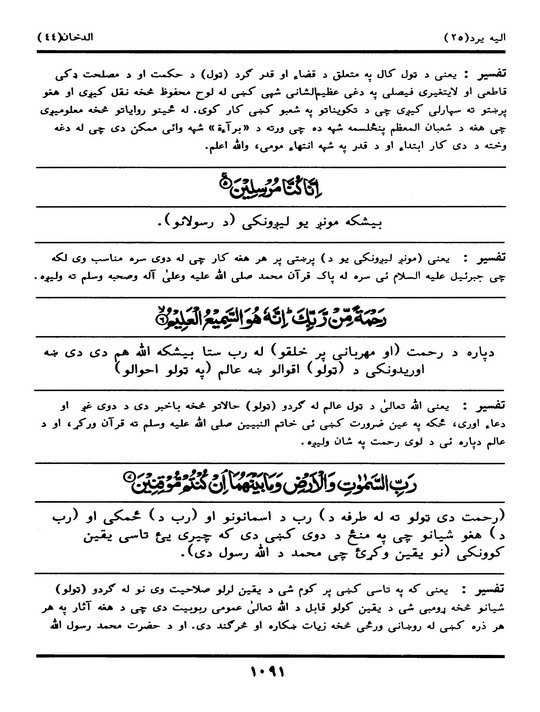 اليه يرد(٢٥) الدخان(٤٤)
تفسير : يعنی د ټول کال په متعلق د قضاء او قدر ګرد (ټول) د حکمت او د مصلحت ډکي
قاطعی او لايتغيری فيصلی په دغی عظيم‌الشانی شپی کښی له لوح محفوظ څخه نقل کيږي او هغو
پرښتو ته سپارلی کيږي چی د تکويناتو په شعبو کښی کار کوی. له ځينو رواياتو څخه معلوميږي
چی هغه د شعبان المعظم پنځلسمه شپه ده چی ورته د «برآءة» شپه وائی ممکن دی چی له دغه
وخته د دی کار ابتداء او د قدر په شپه انتهاء مومی، والله اعلم.
اِنَّا كُنَّا مُرْسِلِيْنَ ۝٥
بيشکه مونږ يو ليږونکی (د رسولانو).
تفسير : يعنی (مونږ ليږونکی يو د) پرښتی پر هر هغه کار چی له دوی سره مناسب وی لکه
چی جبرئيل عليه السلام ئی سره له پاک قرآن محمد صلی الله عليه وعلیٰ آله وصحبه وسلم ته وليږه.
رَحْمَةً مِّنْ رَّبِّكَ ؕ اِنَّهٗ هُوَ السَّمِيْعُ الْعَلِيْمُ ۝٦
دپاره د رحمت (او مهربانی پر خلقو) له رب ستا بيشکه الله هم دی دی ښه
اوريدونکی د (ټولو) اقوالو ښه عالم (په ټولو احوالو)
تفسير : يعنی الله تعالیٰ د ټول عالم له ګردو (ټولو) حالاتو څخه باخبر دی د دوی غږ او
دعاء اوری، ځکه په عين ضرورت کښی ئی خاتم النبيين صلی الله عليه وسلم ته قرآن ورکړ، او د
عالم دپاره ئی د لوی رحمت په شان وليږه.
رَبِّ السَّمٰوٰتِ وَالْاَرْضِ وَمَا بَيْنَهُمَا اِنْ كُنْتُمْ مُّوْقِنِيْنَ ۝٧
(رحمت دی ټولو ته له طرفه د) رب د اسمانونو او (رب د) ځمکی او (رب
د) هغو شيانو چی په منځ د دوی کښی دی که چيری يئ تاسی يقين
کوونکی (نو يقين وکړئ چی محمد د الله رسول دی).
تفسير : يعنی که په تاسی کښی پر کوم شی د يقين لرلو صلاحيت وی نو له ګردو (ټولو)
شيانو څخه ړومبی شی د يقين کولو قابل د الله تعالیٰ عمومی ربوبيت دی چی د هغه آثار په هر
هر ذره کښی له روښانی ورځی څخه زيات ښکاره او څرګند دی. او د حضرت محمد رسول الله
١٠٩١